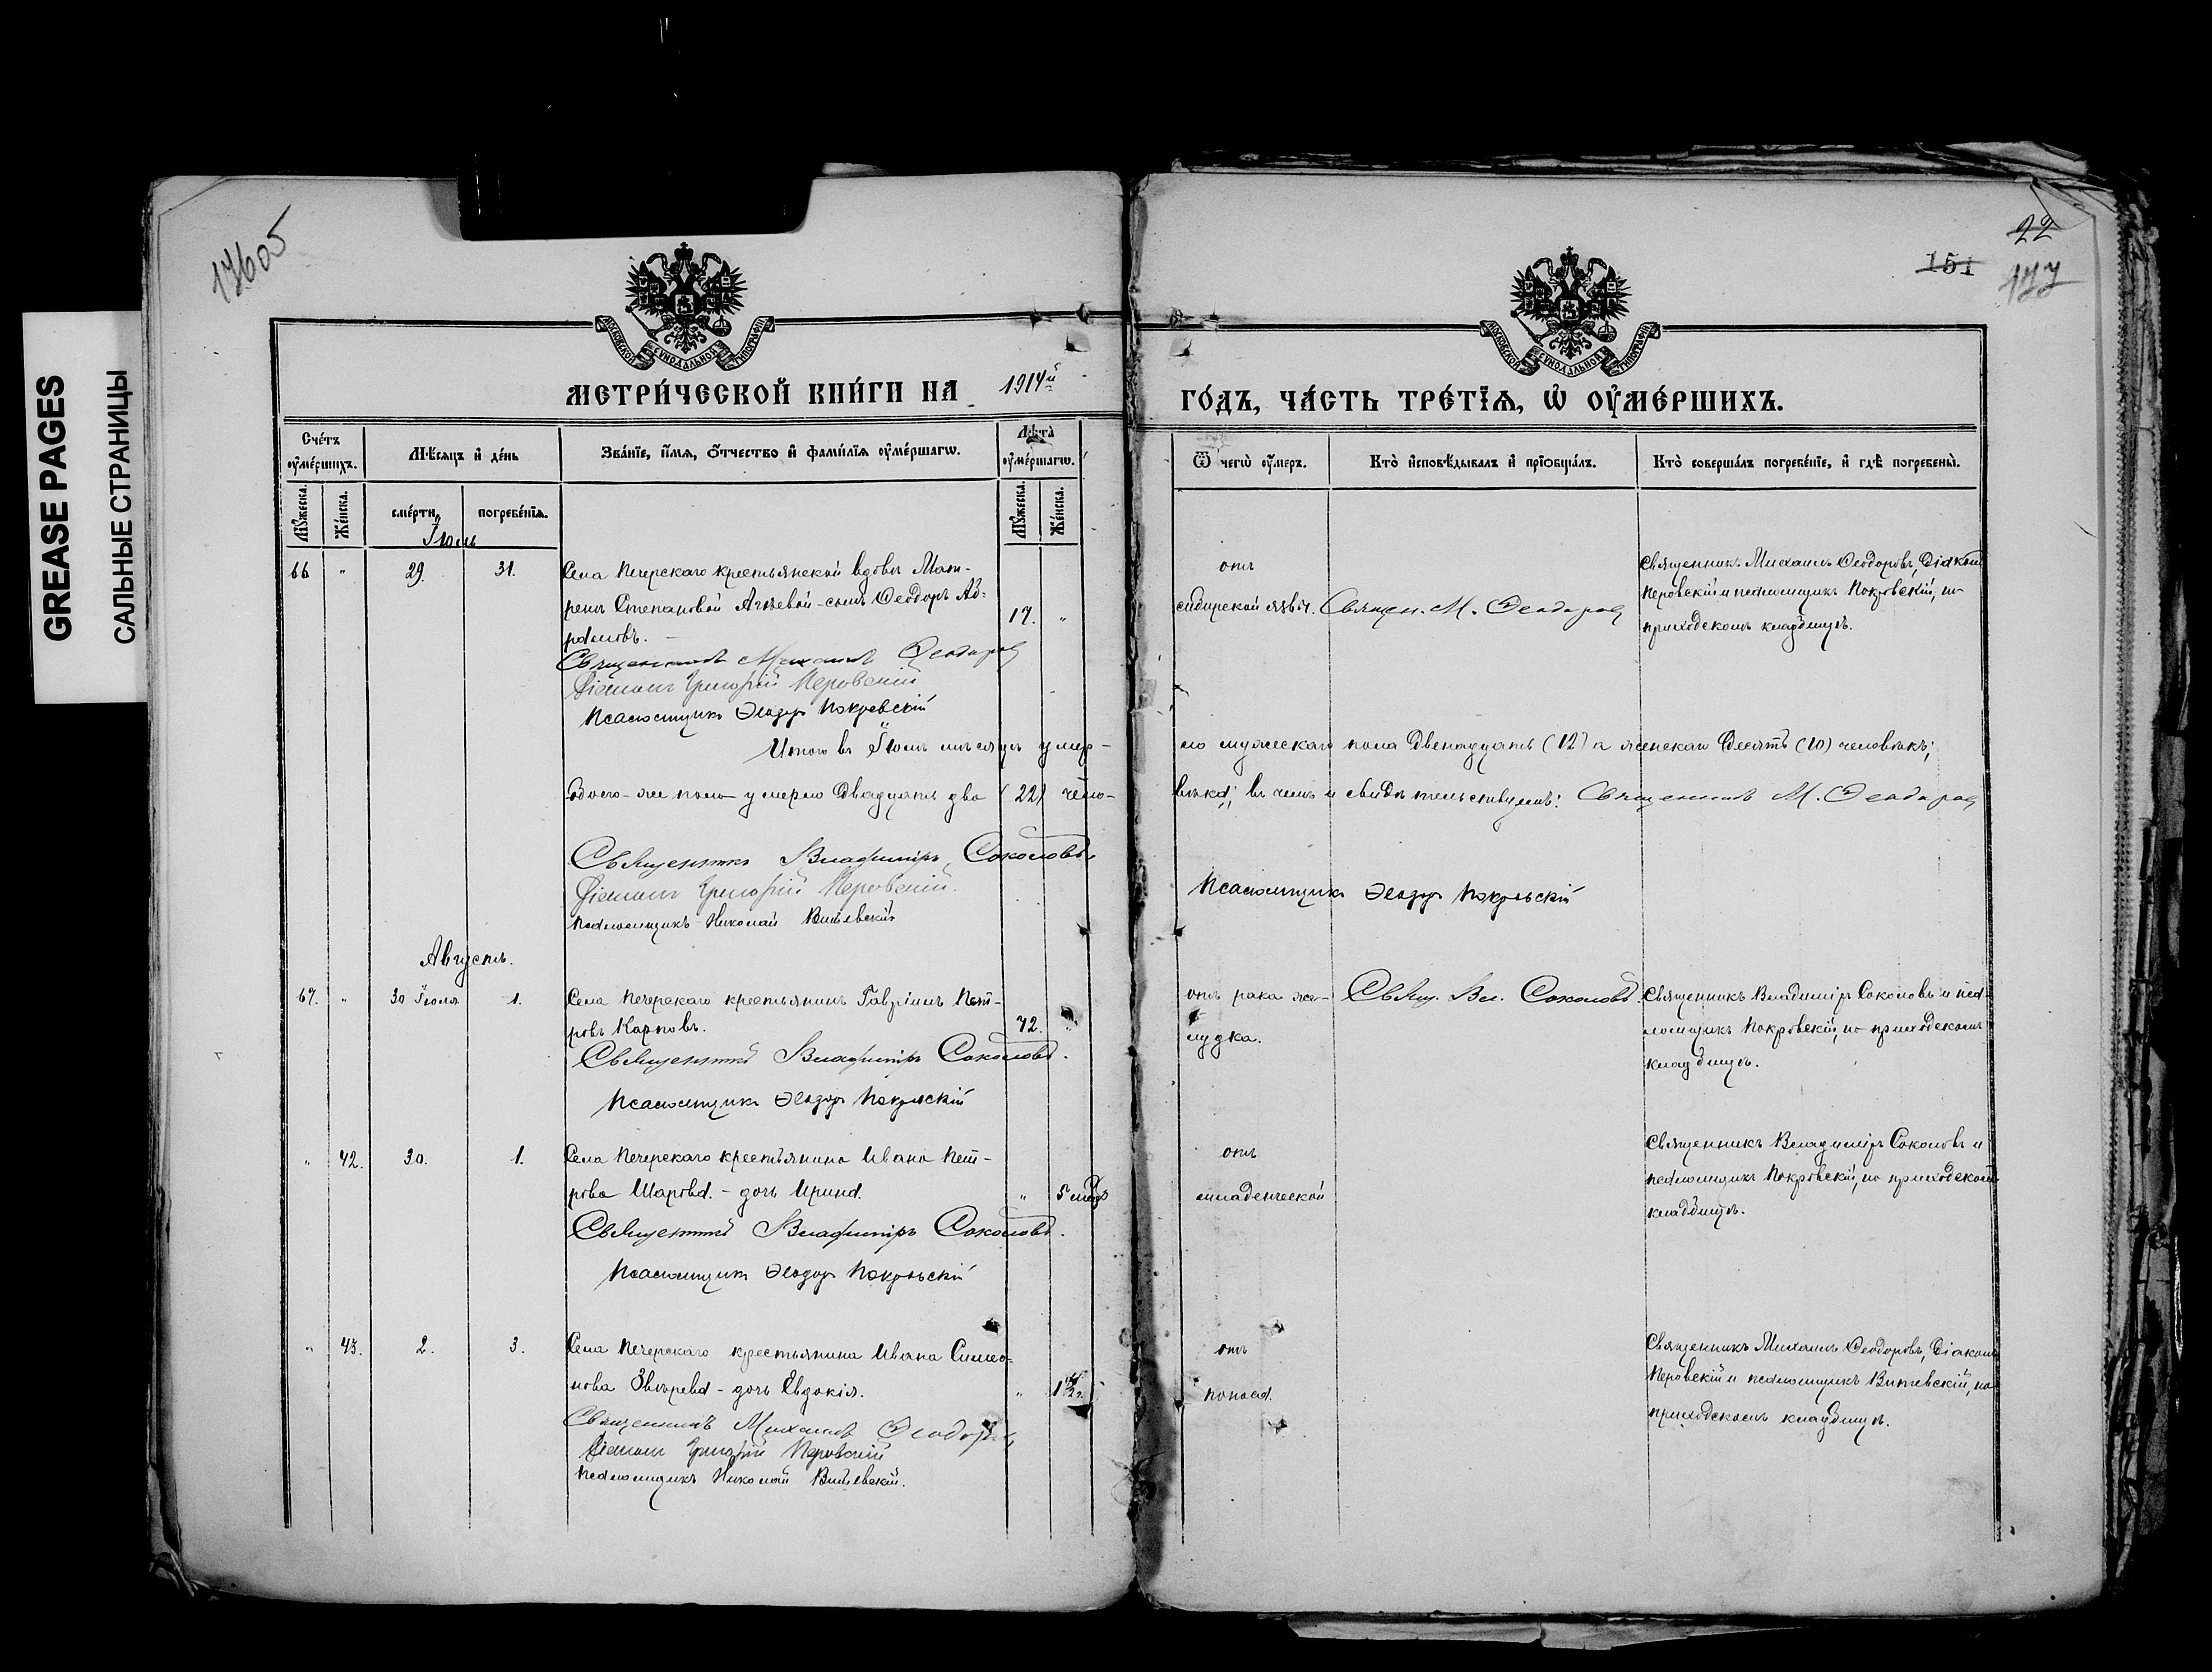 GREASE PAGES
САЛЬНЫЕ СТРАНИЦЫ
17605
22
151
177
МОСКОВСКОЙ СѴНОДАЛЬНОЙ ТИПОГРАФІИ
МОСКОВСКОЙ СѴНОДАЛЬНОЙ ТИПОГРАФІИ
МЕТРИ́ЧЕСКОЙ КНИ́ГИ НА 1914й
ГО́ДЪ, ЧА́СТЬ ТРЕ́ТЇѦ, Ѡ҆ ОУ҆МЕ́РШИХЪ.
Сче́тъ оу҆ме́ршихъ.
Мѣ́сѧцъ и҆ де́нь
Зва́нїе, и҆́мѧ, ѻ҆́тчество и҆ фами́лїѧ оу҆ме́ршагѡ.
Лѣ́та оу҆ме́ршагѡ.
Ѿ чегѡ̀ оу҆́меръ.
Кто̀ и҆сповѣ́дывалъ и҆ прїѡбща́лъ.
Кто̀ соверша́лъ погребе́нїе, и҆ гдѣ̀ погребены̀.
Мꙋ́жеска.
Же́нска.
сме́рти.
погребе́нїѧ.
Мꙋ́жеска.
Же́нска.
Іюль
66 " 29. 31. Села Печерскаго крестьянской вдовы Мат-
рены Степановой Агѣевой - сынъ Ѳеодоръ Аб-
рамовъ. 17. "
отъ
сибирской язвы. Священ. М. Ѳеодоровъ
Священникъ Михаилъ Ѳеодоровъ, Діаконъ
Перовскій и псаломщикъ Покровскій, на
приходскомъ кладбищѣ.
Священникъ Михаилъ Ѳеодоровъ
Діаконъ Григорій Перовскій
Псаломщикъ Ѳеодоръ Покровскій
Итого въ Іюлѣ мѣсяцѣ умер-
ло мужескаго пола двенадцать (12) а женскаго десять (10) человѣкъ;
обоего-же пола умерло двадцать два (22) чело-
вѣка; въ чемъ и свидѣтельствуемъ: Священникъ М. Ѳеодоровъ
Священникъ Владиміръ Соколовъ.
Діаконъ Григорій Перовскій.
Псаломщикъ Ѳеодоръ Покровскій
Псаломщикъ Николай Витевскій
Августъ.
67. " 30 Іюля 1. Села Печерскаго крестьянинъ Гавріилъ Пет-
ровъ Карповъ. 72. "
отъ рака же-
лудка.
Свящ. Вл. Соколовъ.
Священникъ Владиміръ Соколовъ и пса-
ломщикъ Покровскій, на приходскомъ
кладбищѣ.
Священникъ Владиміръ Соколовъ.
Псаломщикъ Ѳеодоръ Покровскій
" 42. 30. 1. Села Печерскаго крестьянина Ивана Пет-
рова Шарова. - дочь Ирина. "
отъ
младенческой
Священникъ Владиміръ Соколовъ и
псаломщикъ Покровскій, на приходскомъ
кладбищѣ.
Священникъ Владиміръ Соколовъ.
Псаломщикъ Ѳеодоръ Покровскій
" 43. 2. 3. Села Печерскаго крестьянина Ивана Симео-
нова Звѣрева - дочь Евдокія. " 1 1/2 г.
отъ
поноса.
Священникъ Михаилъ Ѳеодоровъ, Діаконъ
Перовскій и псаломщикъ Витевскій, на
приходскомъ кладбищѣ.
Священникъ Михаилъ Ѳеодоровъ
Діаконъ Григорій Перовскій
Псаломщикъ Николай Витевскій.